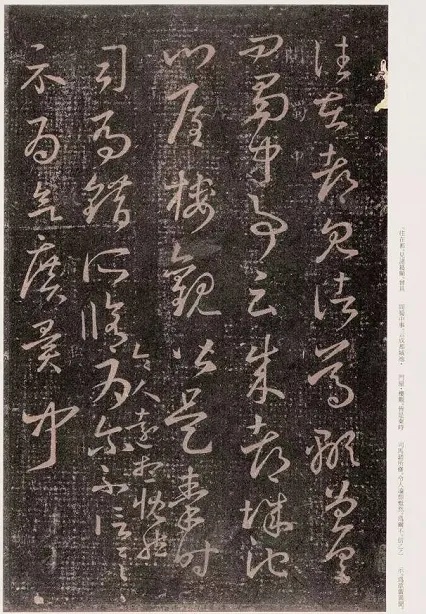 往在都見諸葛顒曾具
問蜀中事云成都城池
門屋樓觀皆是秦時
司馬錯所脩令人遠想慨然為尔不信一一
示為欲廣異聞